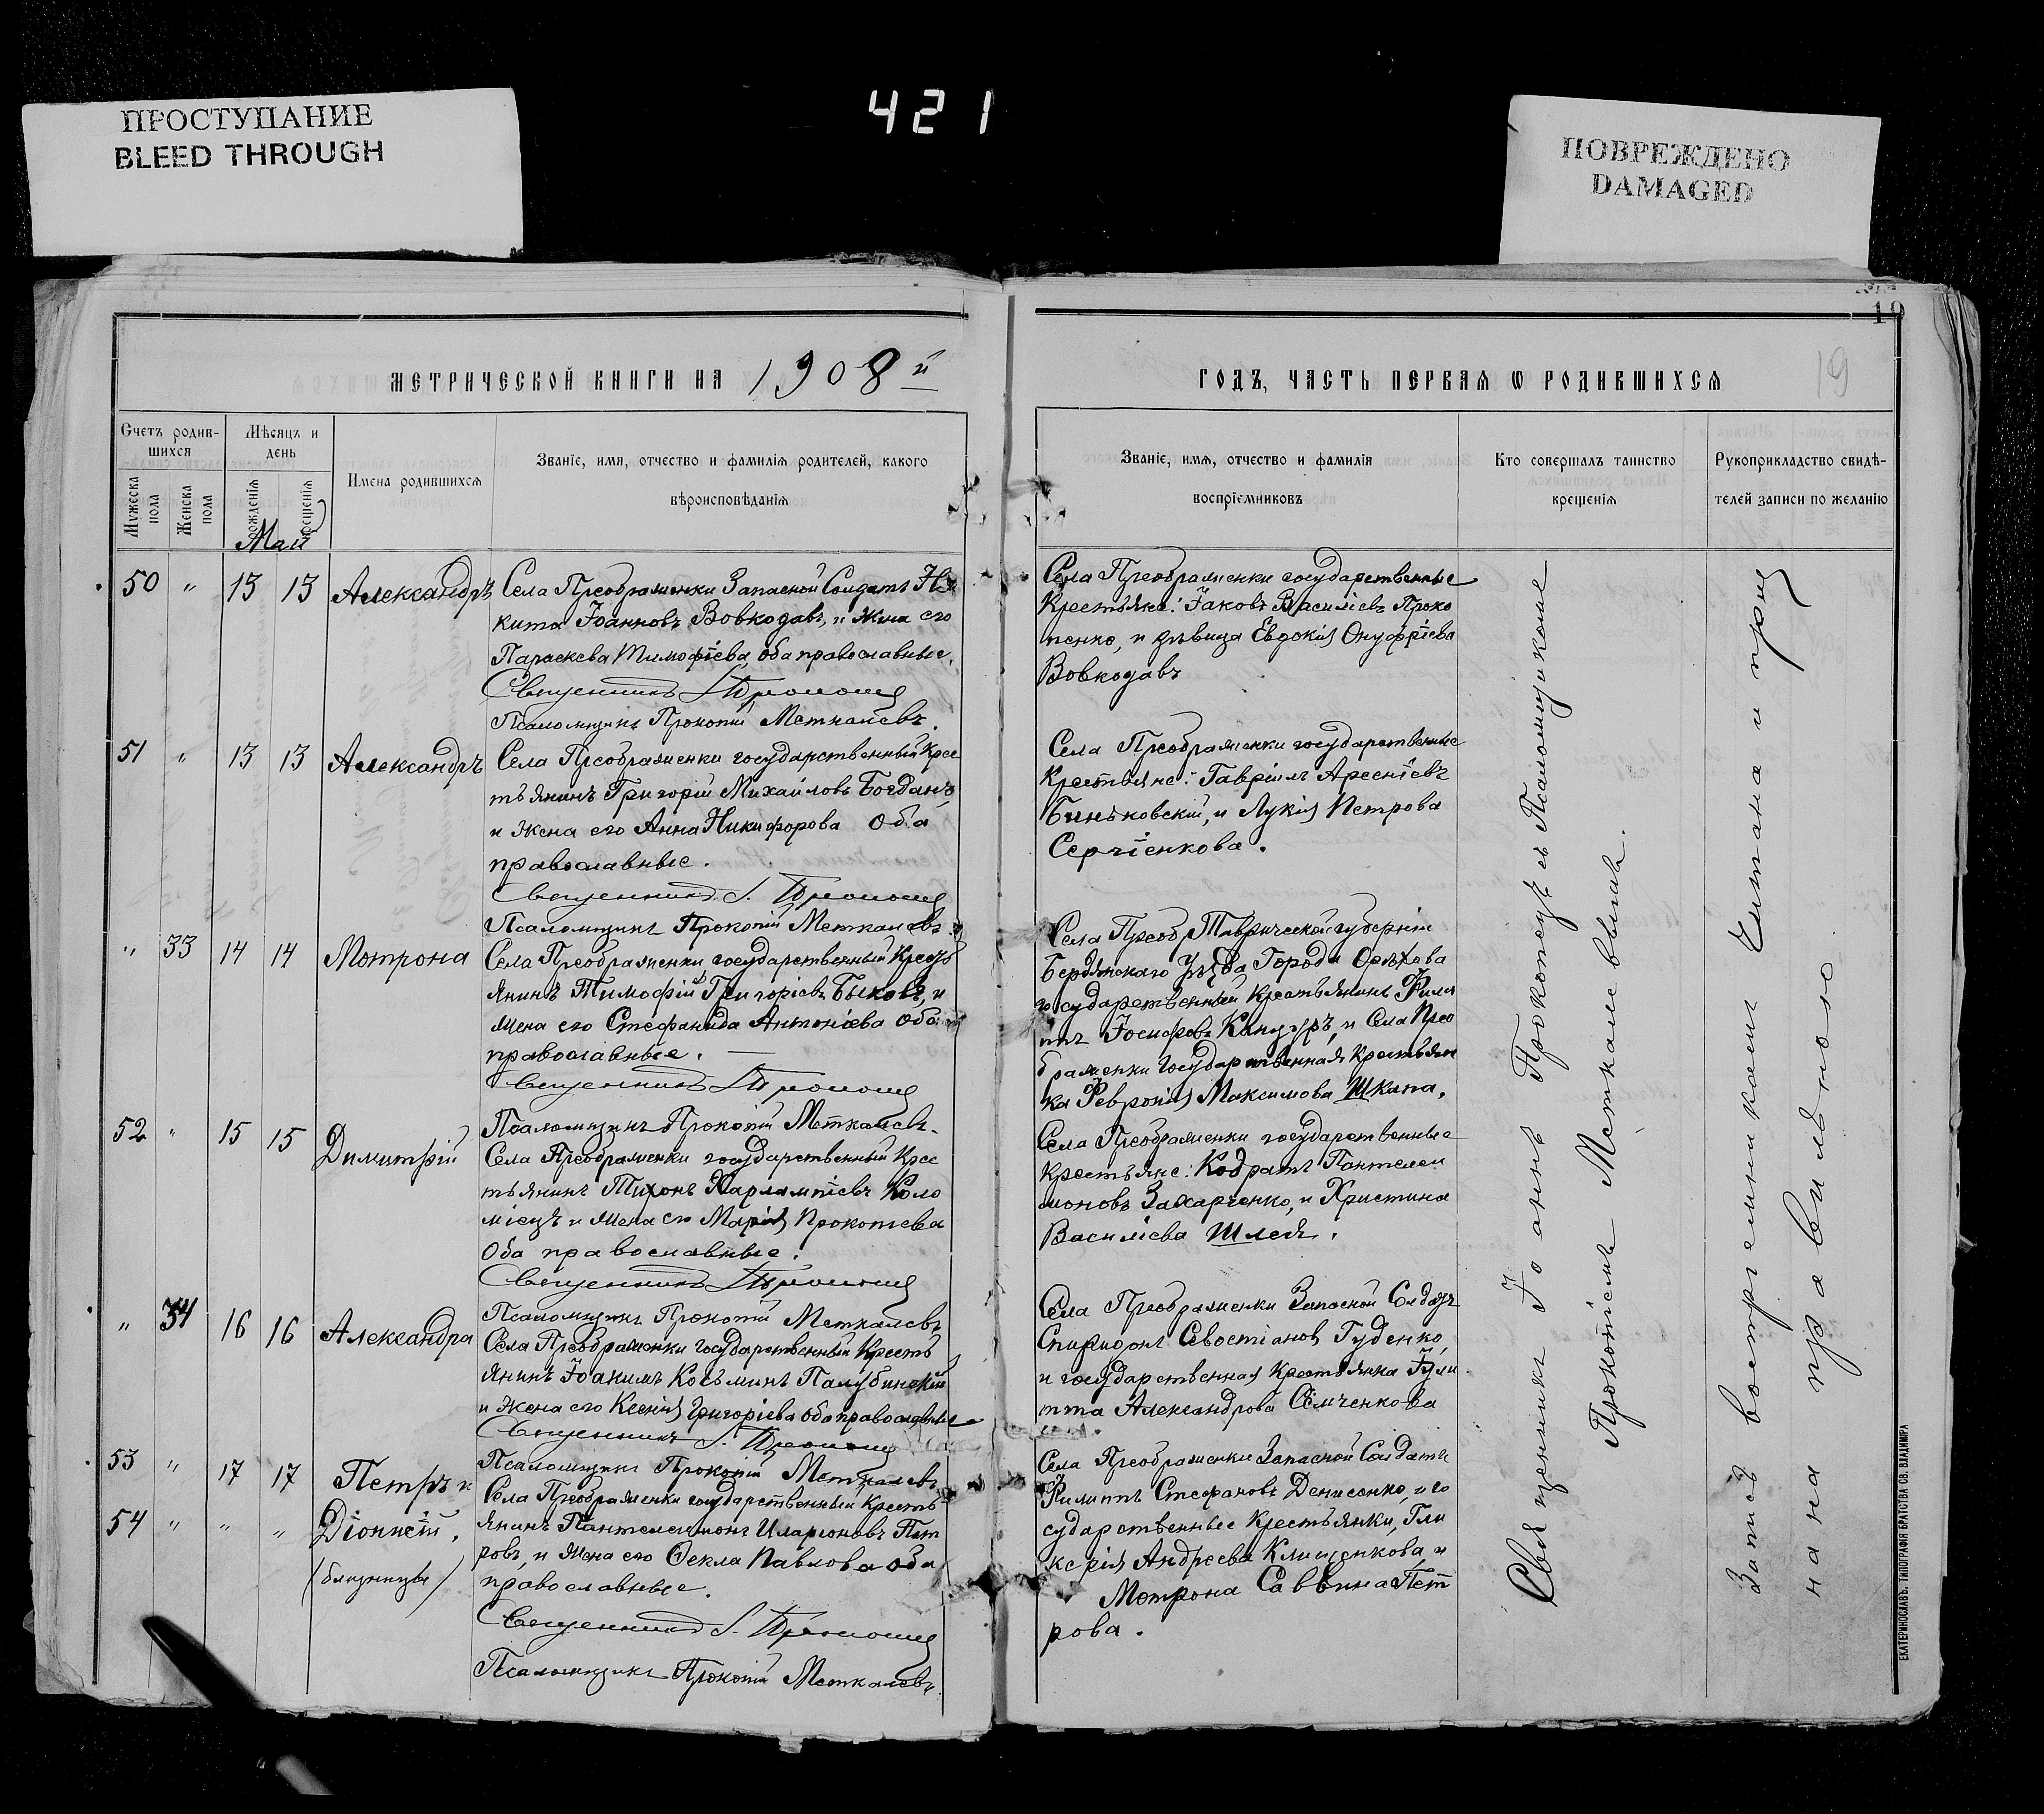 ПРОСТУПАНИЕ
BLEED THROUGH
421
ПОВРЕЖДЕНО
DAMAGED
19
19
МЕТРИЧЕСКОЙ КНИГИ НА 1908й
ГОДЪ, ЧАСТЬ ПЕРВАЯ Ѡ РОДИВШИХСЯ
Счетъ родив-
шихся
Мужеска пола
Женска пола
Мѣсяцъ и
день
рожденія
крещенія
Май
Имена родившихся
Званіе, имя, отчество и фамилія родителей, какого
вѣроисповѣданія
Званіе, имя, отчество и фамилія
воспріемниковъ
Кто совершалъ таинство
крещенія
Рукоприкладство свидѣ-
телей записи по желанію
50 " 13 13 Александръ
Села Преображенки Запасной Солдатъ Ни
кита Іоанновъ Вовкодавъ, и жена его
Параскева Тимофіева, оба православные.
Священникъ І. Прокопец
Псаломщикъ Прокопій Меткалевъ.
Села Преображенки государственные
Крестьяне: Іаковъ Василіевъ Проко
пенко, и дѣвица Евдокія Онуфріева
Вовкодавъ
51 " 13 13 Александръ
Села Преображенки государственный Крес
тьянинъ Григорій Михайловъ Богданъ,
и жена его Анна Никифорова Оба
православные.
Священникъ І. Прокопец
Псаломщикъ Прокопій Меткалевъ.
Села Преображенки государственные
Крестьяне: Гавріилъ Арсеніевъ
Биньковскій, и Лукія Петрова
Сергіенкова.
" 33 14 14 Мотрона
Села Преображенки государственный Кресть
янинъ Тимофій Григоріевъ Быковъ, и
жена его Стефанида Антоніева Оба
православные.
Священникъ І. Прокопец
Псаломщикъ Прокопій Меткалевъ.
Села Преобр Таврической губерніи
Бердянскаго Уѣзда Города Орѣхова
государственный Крестьянинъ Фили
ппъ Іосифовъ Канцуръ, и Села Прео
браженки государственная Крестьян
ка Февронія Максимова Шкапа.
52 " 15 15 Димитрій
Села Преображенки государственный Крес
тьянинъ Тихонъ Харлампіевъ Коло
міецъ и жена его Марія Прокопіева
Оба православные.
Священникъ І. Прокопец
Псаломщикъ Прокопій Меткалевъ
Села Преображенки государственные
Крестьяне: Кодратъ Пантелеи
моновъ Захарченко, и Христина
Василіева Шлея.
" 34 16 16 Александра
Села Преображенки государственный Кресть
янинъ Іоакимъ Косьминъ Палубинскій
и жена его Ксенія Григоріева оба православные
Священникъ І. Прокопец
Псаломщикъ Прокопій Меткалевъ
Села Преображенки Запасной Солдатъ
Спиридонъ Севостіановъ Гуденко,
и государственная Крестьянка Іули
тта Александрова Семченкова
53 " 17 17 Петръ и
54 " " " Діонисій.
(близнецы)
Села Преображенки государственный Кресть
янинъ Пантелеимонъ Иларіоновъ Пет
ровъ, и жена его Ѳекла Павлова оба
православные.
Священникъ І. Прокопец
Псаломщикъ Прокопій Меткалевъ.
Села Преображенки Запасной Солдатъ
Филиппъ Стефановъ Денисенко, и го
сударственные Крестьянки, Гли
керія Андреева Клищенкова, и
Мотрона Саввина Пет
рова.
Священникъ Іоаннъ Прокопецъ съ Псаломщикомъ
Прокопіемъ Меткалеввымъ.
Запись воспріемникамъ Читана и приз
нана правильною.
ЕКАТЕРИНОСЛАВЪ. ТИПОГРАФІЯ БРАТСТВА СВ. ВЛАДИМІРА